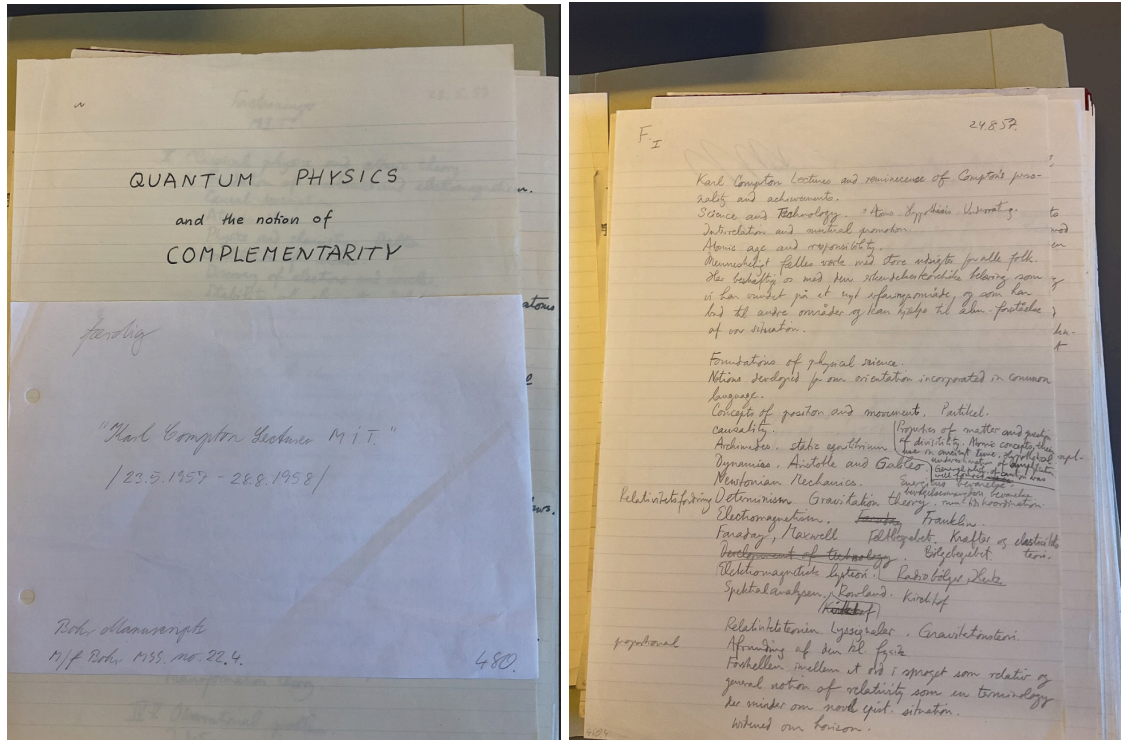 QUANTUM PHYSICS
and the notion of
COMPLEMENTARITY
færdig
"Karl Compton Lectures M.I.T."
/23.5.1957 - 28.8.1958/
Bohr Manuscript
M/f Bohr MSS. no. 22.4.
480.
F.
I
24.8.57.
Karl Compton Lectures and reminiscense of Compton's perso-
nality and achievements.
Science and Technology.
Interrelation and mutual promotion.
Atomic age and responsibility.
Menneskehet fælles værk med store udsigter for alle folk.
Her beskæftige os med den erkendelsesteoretiske belæring som
vi har vundet på et nyt erfaringsområde, og som har
bud til andre områder og kan hjælpe til alm. forståelse
af vor situation.
Foundations of physical science.
Notions developed for our orientation incorporated in common
language.
Concepts of position and movement. Partikel.
causality.
Properties of matter and
of divisibility. Atomic concepts, their
use in ancient time.
Archimedes. static equilibrium
Dynamics. Aristotle and Galileo.
Newtonian Mechanics.
Energiens bevarelse.
Determinism Gravitation theory.
Electromagnetism. Faraday Franklin.
Faraday, Maxwell Feltbegrebet. Krafter og elasticitets
teori.
Development of technology. Bølgebegrebet
Elektromagnetisk lysteori. Radiobølger, Hertz
Spektralanalysen, Rowland. Kirchhof
Kirchhof
Relativitetsteorien Lyssignaler. Gravitationsteori
proportional
Afrunding af den kl. fysik
Forskellen imellem et ord i sproget som relativ og
general notion of relativity som en terminology
der minder om novel epist. situation.
widened our horizon.